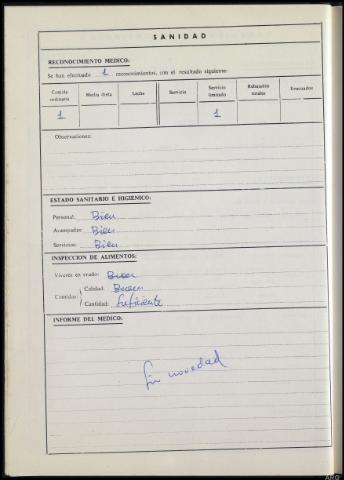 SANIDAD
RECONOCIMIENTO MEDICO:
Se han efectuado 1 reconocimientos, con el resultado siguiente:
Comida ordinaria Media dieta Leche Servicio Servicio limitado Rebajados Evacuados
1 1
Observaciones:
ESTADO SANITARIO E HIGIENICO:
Personal: Bien
Acampados: Bien
Servicios: Bien
INSPECCION DE ALIMENTOS:
Víveres en crudo: Buen
Calidad: Buena
Comidas:
Cantidad: Suficiente
INFORME DEL MEDICO:
Sin novedad